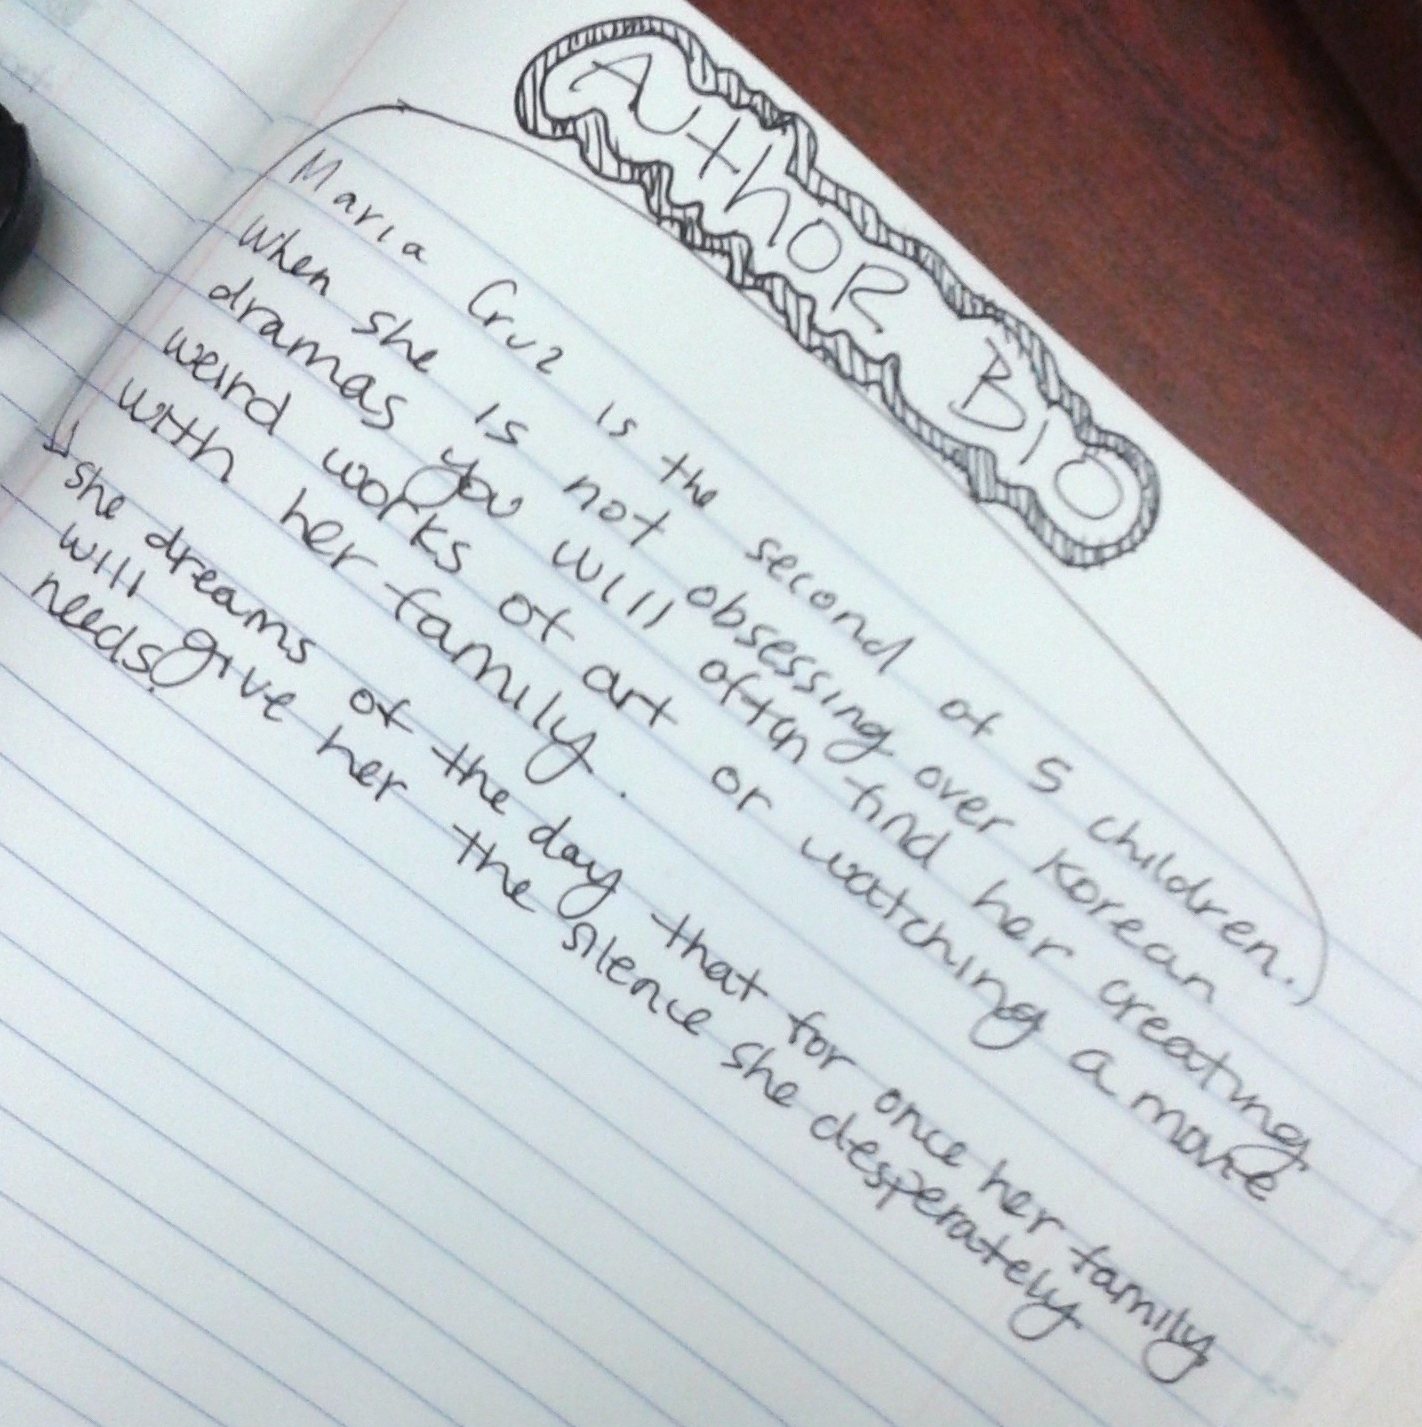 AuthOR BIO
Maria Cruz is the second of 5 children.
When she is not obsessing over Korean
dramas you will often find her creating
weird works of art or watching a movie
with her family.
she dreams of the day that for once her family
will give her the silence she desperately
needs.